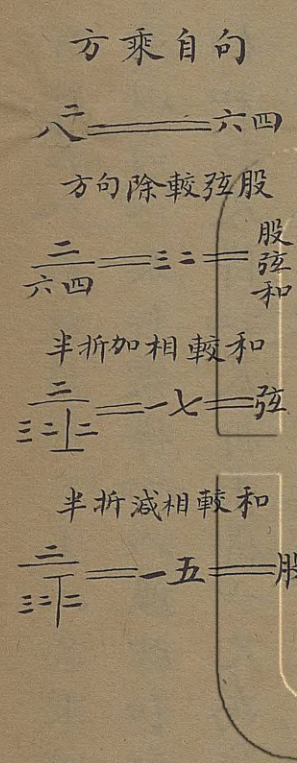 句自乘方
八二＝六四
股弦較除句方
二
六四
＝三二＝
股弦和
和較相加折半
二
三二⊥二
＝一七＝弦
和較相減折半
二
三二丅二
＝一五＝股